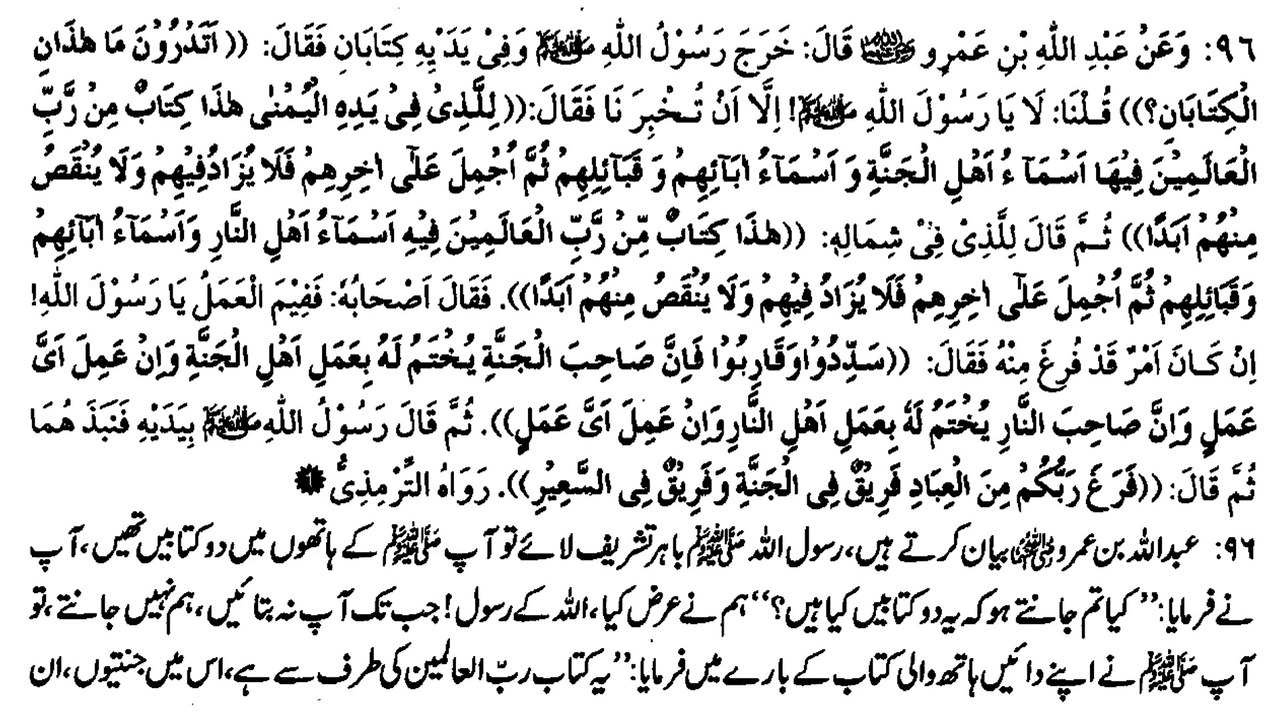 ٩٦: وَعَنْ عَبْدِ اللّٰهِ بْنِ عَمْرٍو ؓ قَالَ: خَرَجَ رَسُوْلُ اللّٰهِ ﷺ وَفِیْ یَدَیْهِ کِتَابَانِ فَقَالَ: ((اَتَدْرُوْنَ مَا هٰذَانِ
الْکِتَابَانِ؟)) قُلْنَا: لَا یَا رَسُوْلَ اللّٰهِ ﷺ! اِلَّا اَنْ تُخْبِرَ نَا فَقَالَ:((لِلَّذِیْ فِیْ یَدِهِ الْیُمْنٰی هٰذَا کِتَابٌ مِنْ رَّبِّ
الْعَالَمِیْنَ فِیْهَا اَسْمَآءُ اَهْلِ الْجَنَّةِ وَ اَسْمَآءُ اٰبَآئِهِمْ وَ قَبَائِلِهِمْ ثُمَّ اُجْمِلَ عَلٰٓی اٰخِرِهِمْ فَلَا یُزَادُفِیْهِمْ وَلَا یُنْقَصُ
مِنْهُمْ اَبَدًا)) ثُمَّ قَالَ لِلَّذِیْ فِیْ شِمَالِهٖ: ((هٰذَا کِتَابٌ مِّنْ رَّبِّ الْعَالَمِیْنَ فِیْهِ اَسْمَآءُ اَهْلِ النَّارِ وَاَسْمَآءُ اٰبَآئِهِمْ
وَقَبَائِلِهِمْ ثُمَّ اُجْمِلَ عَلٰٓی اٰخِرِهِمْ فَلَا یُزَادُ فِیْهِمْ وَلَا یُنْقَصُ مِنْهُمْ اَبَدًا)). فَقَالَ اَصْحَابُهٗ: فَفِیْمَ الْعَمَلُ یَا رَسُوْلَ اللّٰهِ!
اِنْ کَانَ اَمْرٌ قَدْ فُرِغَ مِنْهُ فَقَالَ: ((سَدِّدُوْاوَقَارِبُوْا فَاِنَّ صَاحِبَ الْجَنَّةِ یُخْتَمُ لَهٗ بِعَمَلِ اَهْلِ الْجَنَّةِ وَاِنْ عَمِلَ اَیَّ
عَمَلٍ وَاِنَّ صَاحِبَ النَّارِ یُخْتَمُ لَهٗ بِعَمَلِ اَهْلِ النَّارِوَاِنْ عَمِلَ اَیَّ عَمَلٍ)). ثُمَّ قَالَ رَسُوْلُ اللّٰهِ ﷺ بِیَدَیْهِ فَنَبَذَ هُمَا
ثُمَّ قَالَ: ((فَرَغَ رَبُّکُمْ مِنَ الْعِبَادِ فَرِیْقٌ فِی الْجَنَّةِ وَفَرِیْقٌ فِی السَّعِیْرِ)). رَوَاهُ التِّرْمِذِیُّ ❶
۹۶: عبداللہ بن عمرو ؓ بیان کرتے ہیں، رسول اللہ ﷺ باہر تشریف لائے تو آپ ﷺ کے ہاتھوں میں دو کتابیں تھیں، آپ
نے فرمایا: ’’کیا تم جانتے ہو کہ یہ دو کتابیں کیا ہیں؟‘‘ ہم نے عرض کیا، اللہ کے رسول! جب تک آپ نہ بتائیں، ہم نہیں جانتے، تو
آپ ﷺ نے اپنے دائیں ہاتھ والی کتاب کے بارے میں فرمایا: ’’یہ کتاب ربّ العالمین کی طرف سے ہے، اس میں جنتیوں، ان